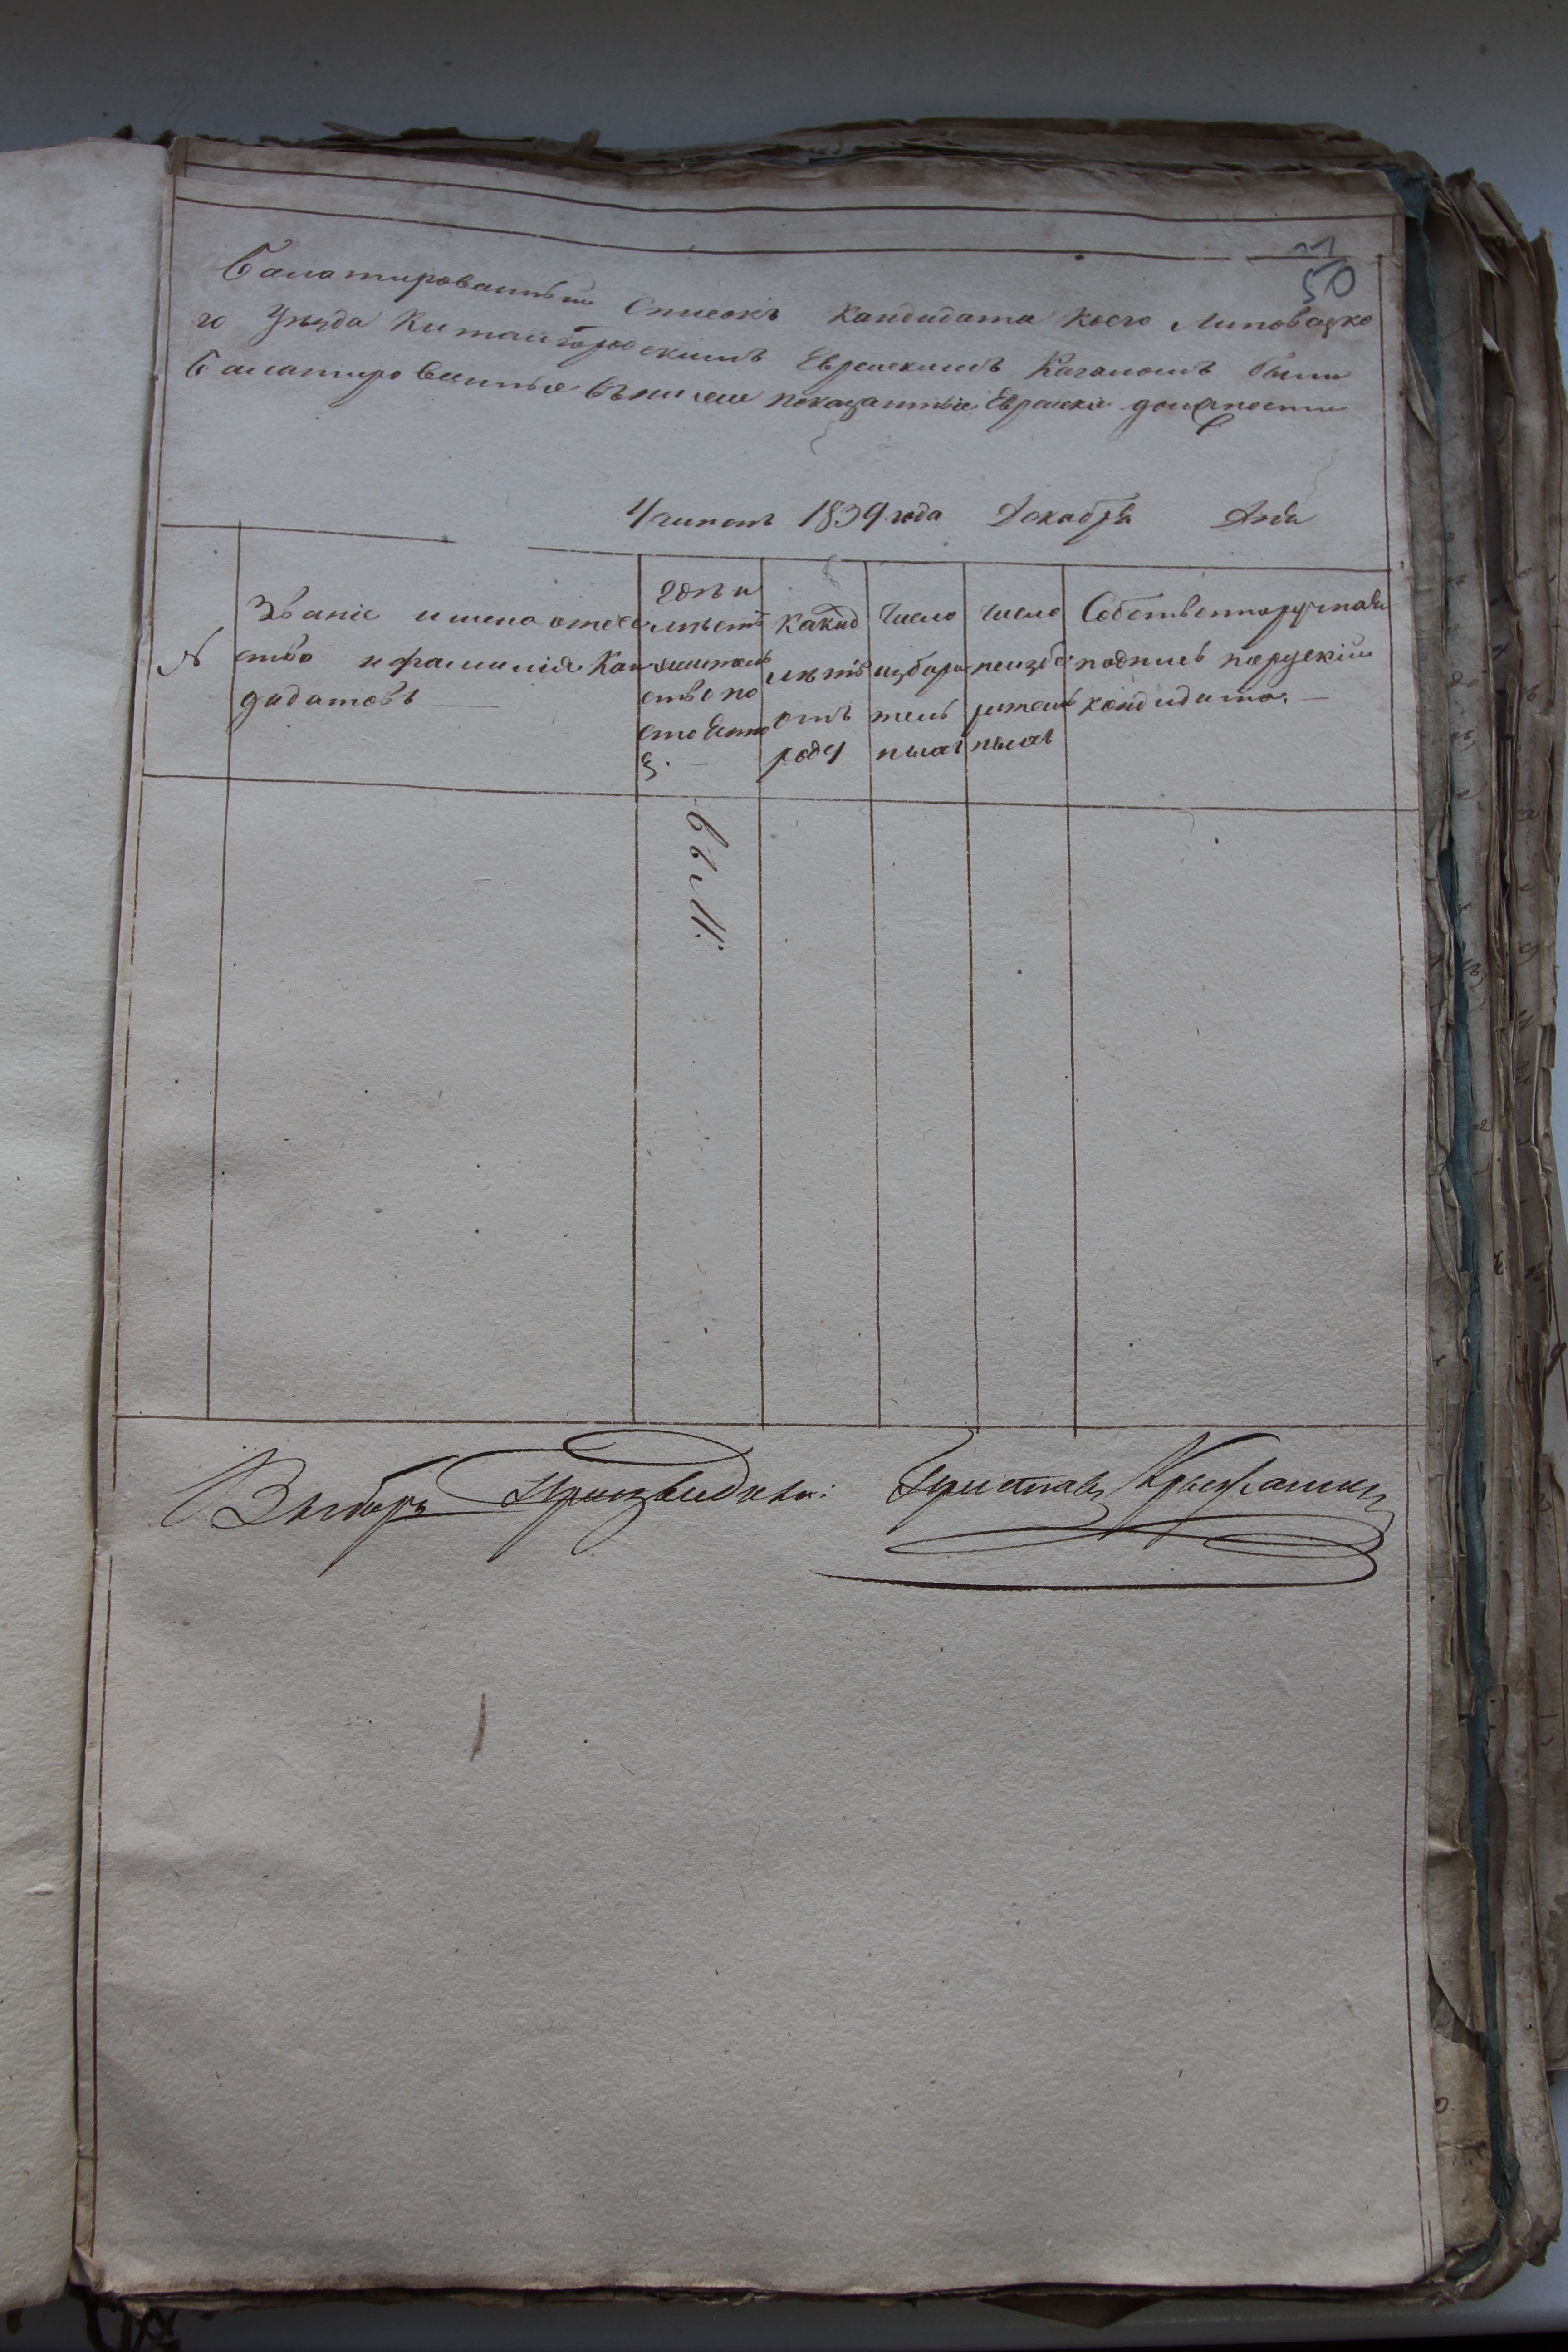 21
50
Балатированный Списокъ кандидата коего Липовецко
го Уѣзда Китайгородскимъ Еврейскимъ Кагаломъ были
балатированные въниже показанные Еврейскіе должности
Учиненъ 1839 года Декабря Дня
№
Званіе имена отече
ство ифамилія Кан
дидатовъ
гдѣ и
жительство по
стоенно
какид
лѣтъ
отъ
роду
Число
избира
тель
ныхъ
число
неизби
рательныхъ
Собственноручная
подпись порускій
кандидата.
Выборъ Произведены: Приставъ